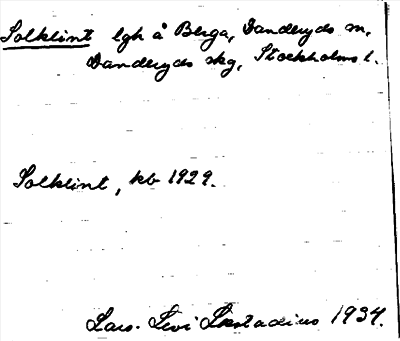 Solklint lgh å Berga, Danderyds sn,
Danderyds skg, Stockholms l.
Solklint, kb 1929.
Lars-Levi Læstadius 1934.